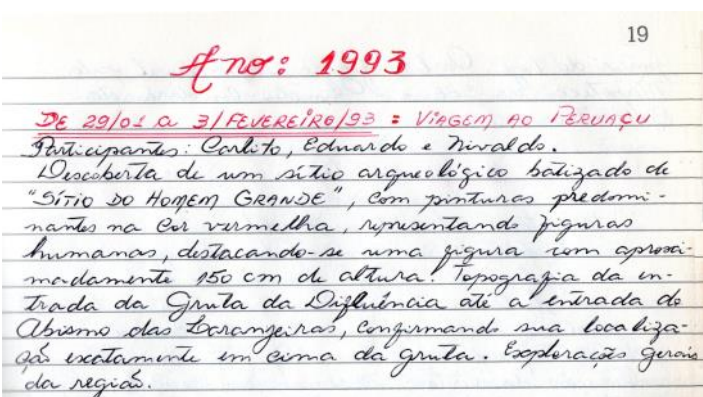 19
Ano: 1993
DE 29/01 a 3/FEVEREIRO/93 = VIAGEM AO PERUAÇU
Participantes: Carlito, Eduardo e Nivaldo.
Descoberta de um sítio arqueológico batizado de
"SÍTIO DO HOMEM GRANDE", com pinturas predomi-
nantes na cor vermelha, representando figuras
humanas, destacando-se uma figura com aproxi-
madamente 150 cm de altura! Topografia da en-
trada da Gruta da Difluência até a entrada do
Abismo das Laranjeiras, confirmando sua localiza-
ção exatamente em cima da gruta. Explorações gerais
da região.